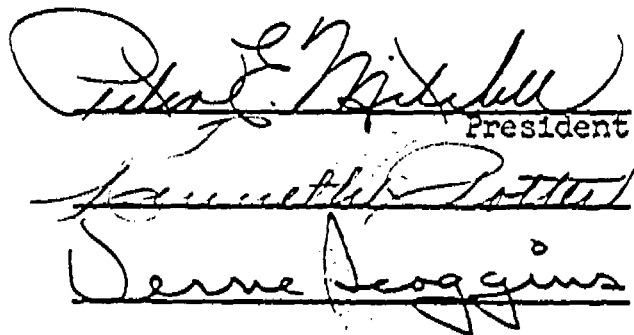 Peter E. Mitchell
President
Kenneth Potter
Verne Scoggins